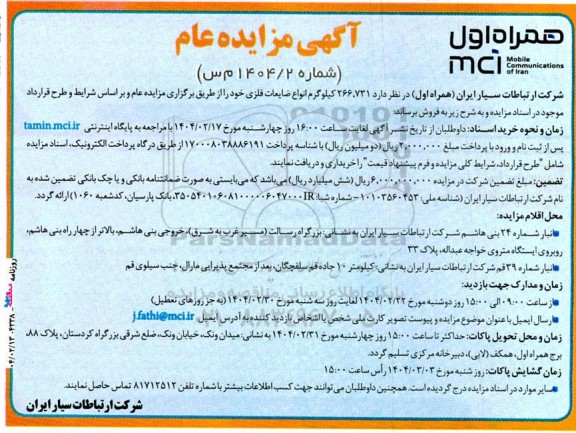 همراه اول
mci Mobile Communications of Iran
آگهی مزایده عام
(شماره ۱۴۰۴/۲ م س)
شرکت ارتباطات سیار ایران (همراه اول) در نظر دارد ۲۶۶,۷۳۱ کیلوگرم انواع ضایعات فلزی خود را از طریق برگزاری مزایده عام و بر اساس شرایط و طرح قرارداد
موجود در اسناد مزایده و به شرح زیر به فروش برساند:
زمان و نحوه خرید اسناد: داوطلبان از تاریخ نشر آگهی لغایت ساعت ۱۶:۰۰ روز چهارشنبه مورخ ۱۴۰۴/۰۲/۱۷ با مراجعه به پایگاه اینترنتی tamin.mci.ir
پس از ثبت نام و ورود با پرداخت مبلغ ۲,۰۰۰,۰۰۰ ریال (دو میلیون ریال) با شناسه پرداخت ۱۷۰۰۰۸۰۳۸۸۸۶۱۹۱ از طریق درگاه پرداخت الکترونیک، اسناد مزایده
شامل "طرح قرارداد، شرایط کلی مزایده و فرم پیشنهاد قیمت" را خریداری و دریافت نمایند.
تضمین: مبلغ تضمین شرکت در مزایده ۶,۰۰۰,۰۰۰,۰۰۰ ریال (شش میلیارد ریال) می‌باشد که می‌بایستی به صورت ضمانتنامه بانکی و یا چک بانکی تضمین شده به
نام شرکت ارتباطات سیار ایران (شناسه ملی: ۱۰۱۰۳۵۶۰۴۵۳ – شماره شبا: IR ، بانک پارسیان، کدشعبه ۱۰۶۰) ارائه گردد.
محل اقلام مزایده:
انبار شماره ۲۴ بنی هاشم شرکت ارتباطات سیار ایران به نشانی: بزرگراه رسالت (مسیر غرب به شرق)، خروجی بنی هاشم، بالاتر از چهار راه بنی هاشم،
روبروی ایستگاه متروی خواجه عبداله، پلاک ۳۳
انبار شماره ۳۹ قم شرکت ارتباطات سیار ایران به نشانی: کیلومتر ۱۰ جاده قم سلفچگان، بعد از مجتمع پذیرایی مارال، جنب سیلوی قم
زمان و مدارک جهت بازدید:
از ساعت ۰۹:۰۰ الی ۱۵:۰۰ روز دوشنبه مورخ ۱۴۰۴/۰۲/۲۲ لغایت روز سه شنبه مورخ ۱۴۰۴/۰۲/۳۰ (به جز روزهای تعطیل)
ارسال ایمیل با عنوان موضوع مزایده و پیوست تصویر کارت ملی شخص یا اشخاص بازدید کننده به آدرس ایمیل j.fathi@mci.ir
زمان و محل تحویل پاکات: حداکثر تا ساعت ۱۵:۰۰ روز چهارشنبه مورخ ۱۴۰۴/۰۲/۳۱ به نشانی: میدان ونک، خیابان ونک، ضلع شرقی بزرگراه کردستان، پلاک ۸۸،
برج همراه اول، همکف (لابی)، دبیرخانه مرکزی تسلیم گردد.
زمان گشایش پاکات: روز شنبه مورخ ۱۴۰۴/۰۳/۰۳ رأس ساعت ۱۵:۰۰
سایر موارد در اسناد مزایده درج گردیده است. همچنین داوطلبان می‌توانند جهت کسب اطلاعات بیشتر با شماره تلفن ۸۱۷۱۲۵۱۲ تماس حاصل نمایند.
شرکت ارتباطات سیار ایران
ParsNamadData
روزنامه